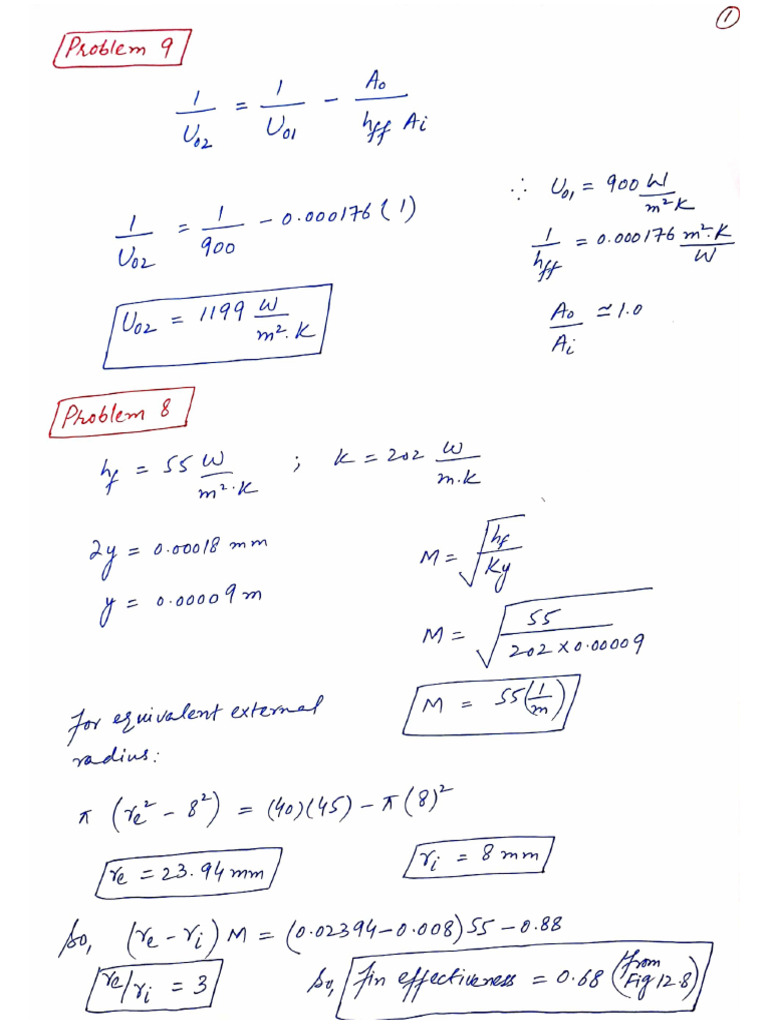 ①
Problem 9
1/U₀₂ = 1/U₀₁ − A₀/(h_ff Aᵢ)
1/U₀₂ = 1/900 − 0.000176(1)
∵ U₀₁ = 900 W/m²K
1/h_ff = 0.000176 m².K/W
U₀₂ = 1199 W/m².K
A₀/Aᵢ ≃ 1.0
Problem 8
h_f = 55 W/m².K ; K = 202 W/m.K
2y = 0.00018 mm
y = 0.00009 m
M = √(h_f/Ky)
M = √(55/(202 × 0.00009))
M = 55(1/m)
for equivalent external
radius:
π (rₑ² − 8²) = (40)(45) − π(8)²
rₑ = 23.94 mm
rᵢ = 8 mm
So, (rₑ − rᵢ) M = (0.02394 − 0.008) 55 − 0.88
rₑ/rᵢ = 3
So, fin effectiveness = 0.68 (from Fig 12.8)